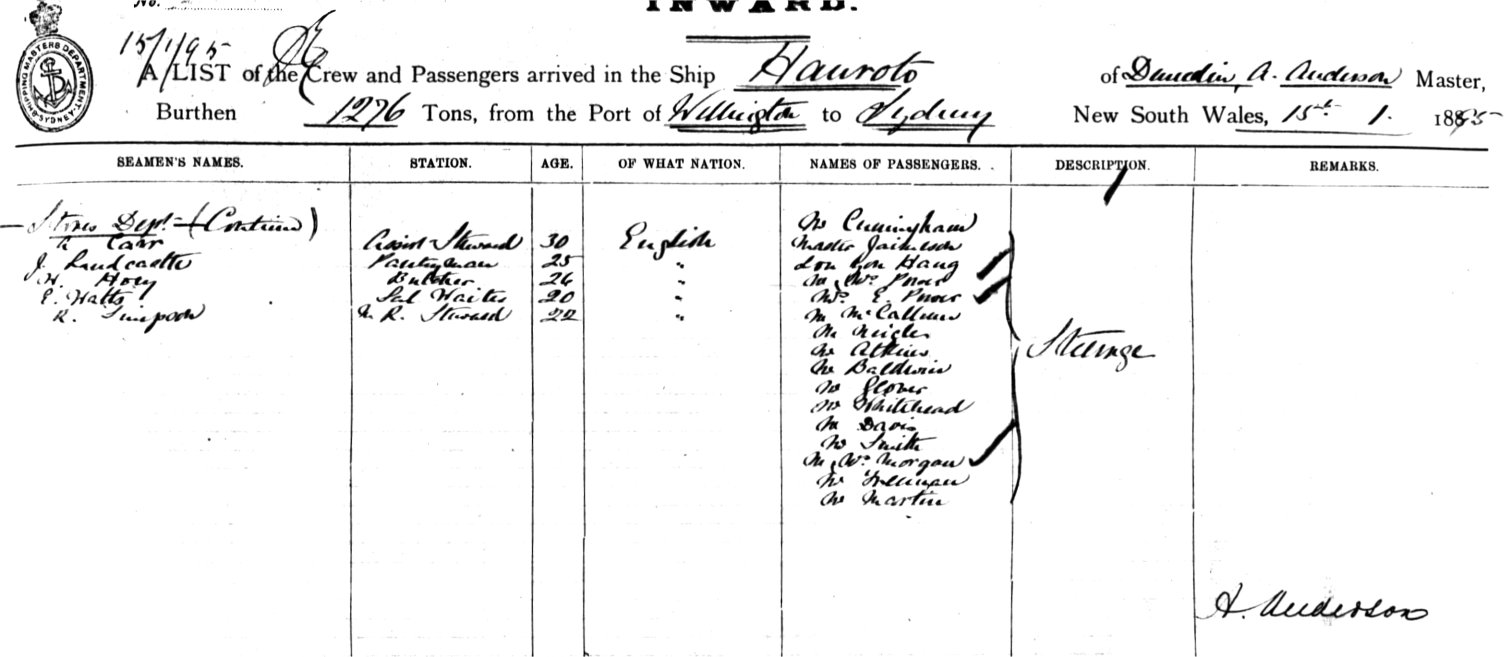 No.
INWARD.
SHIPPING MASTERS DEPARTMENT SYDNEY
15/1/95
A LIST of the Crew and Passengers arrived in the Ship Hauroto of Dunedin, A. Anderson Master,
Burthen 1276 Tons, from the Port of Wellington to Sydney New South Wales, 15th 1. 1895
SEAMEN'S NAMES. STATION. AGE. OF WHAT NATION. NAMES OF PASSENGERS. DESCRIPTION. REMARKS.
Stores Dept (Continued) Mr Cunningham
Carr Assist Steward 30 English Master Jamieson
J. Pantryman 25 " Hang
H. Hoey Butcher 26 " M. Mrs Power
E. Watts Sal Waiter 20 " Mrs E. Power
R. Simpson Steward 22 " M McCallum
M
Steerage
Mr Atkins
Mr Baldwin
Mr Glover
Mr Whitehead
M Davis
Mr Smith
M, Mrs Morgan
Mr Freeman
Mr Martin
A. Anderson